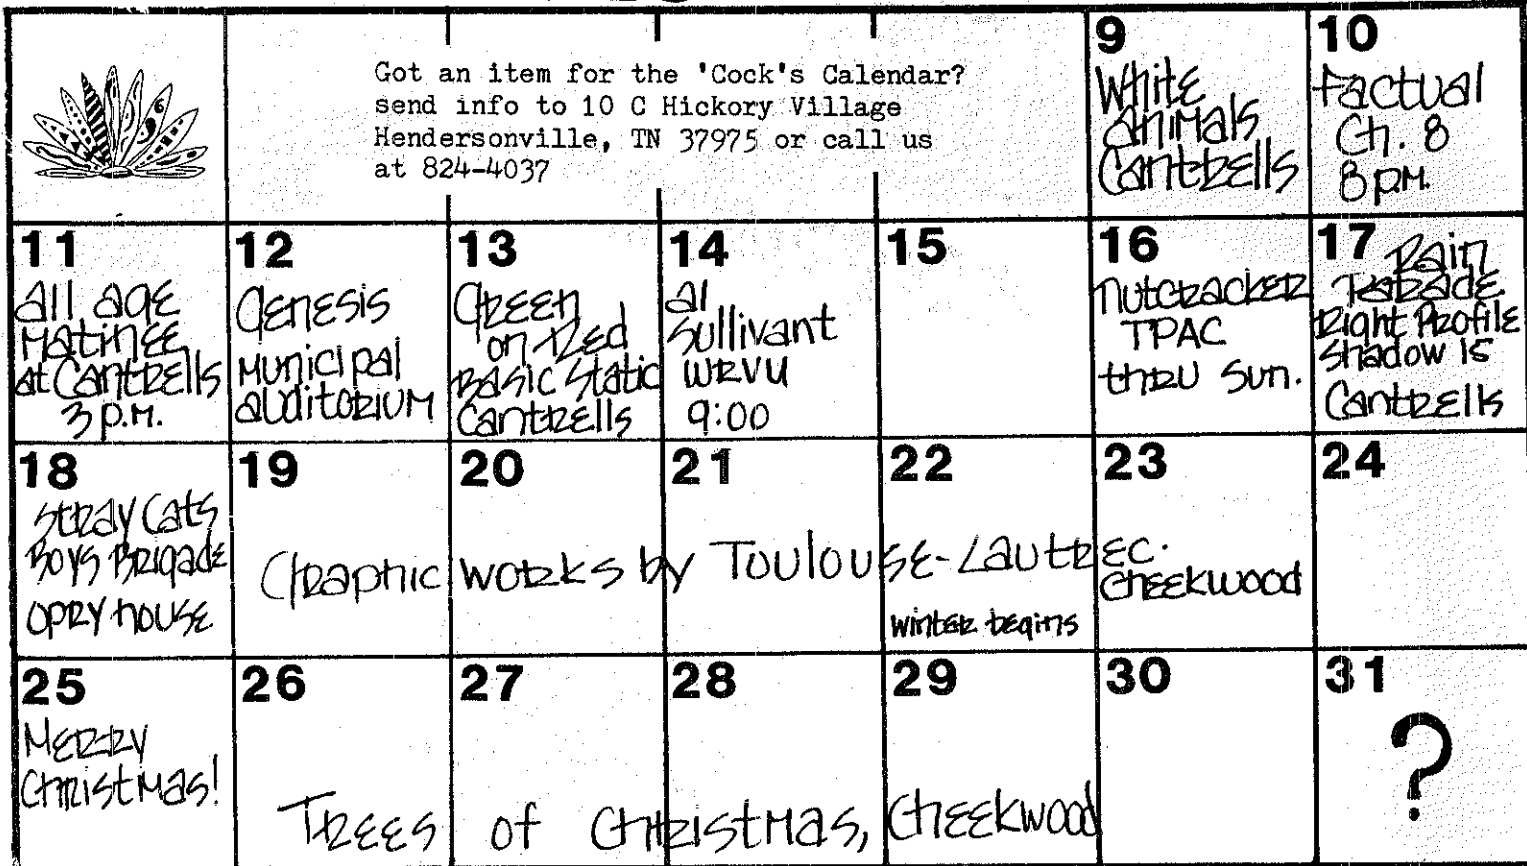 Got an item for the 'Cock's Calendar?
send info to 10 C Hickory Village
Hendersonville, TN 37975 or call us
at 824-4037
9
White
Animals
Cantrells
10
Factual
Ch. 8
8 P.M.
11
All age
Matinee
at Cantrells
3 P.M.
12
Genesis
Municipal
Auditorium
13
Green
on Red
Basic Static
Cantrells
14
Al
Sullivant
WRVU
9:00
15
16
Nutcracker
TPAC
thru Sun.
17 Rain
Parade
Right Profile
Shadow 15
Cantrells
18
Stray Cats
Boys Brigade
Opry House
19
20
21
22
23
24
Graphic works by Toulouse-Lautrec.
Cheekwood
winter begins
25
Merry
Christmas!
26
27
28
29
30
31
?
Trees of Christmas, Cheekwood